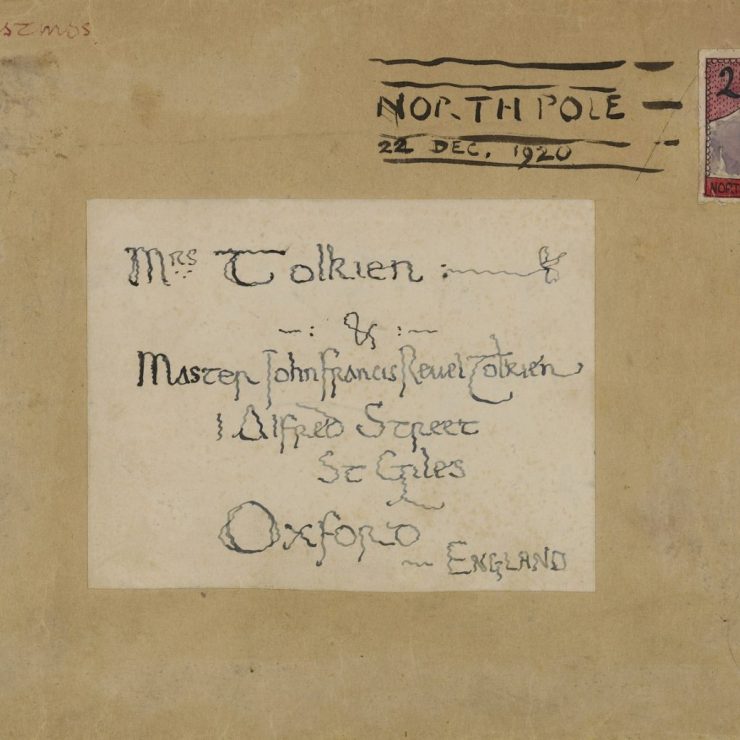 NORTH POLE
22 DEC. 1920
2
NORT
Mrs Tolkien :
— : & : —
Master John Francis Reuel Tolkien
1 Alfred Street
St Giles
Oxford
— ENGLAND